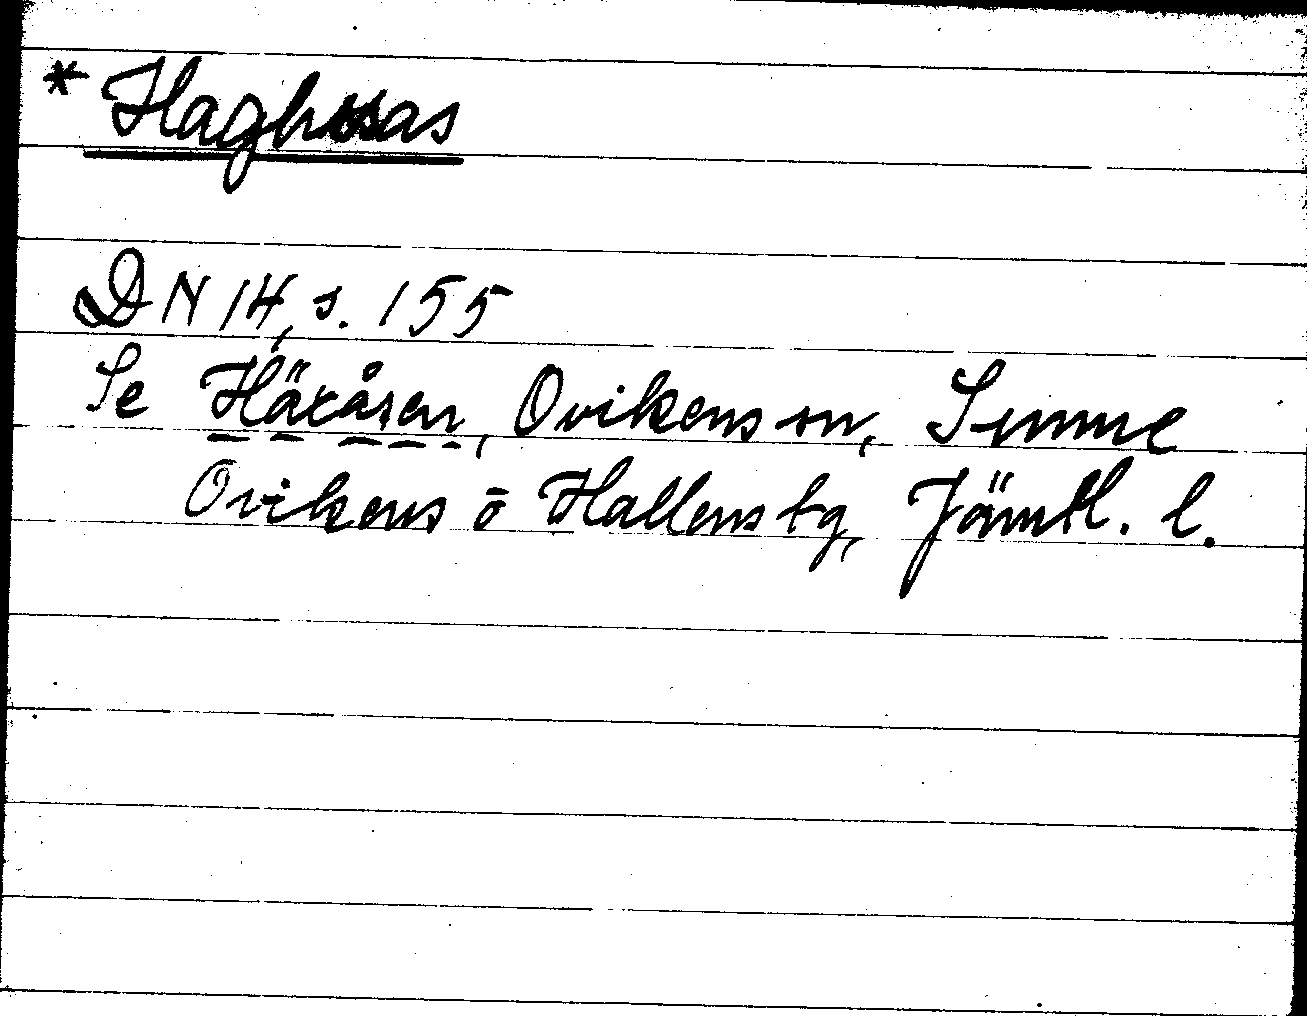 * Haghssas
DN 14, s. 155
Se Häxåsen, Ovikens sn,
Ovikens o Hallens tg, Jämtl. l.